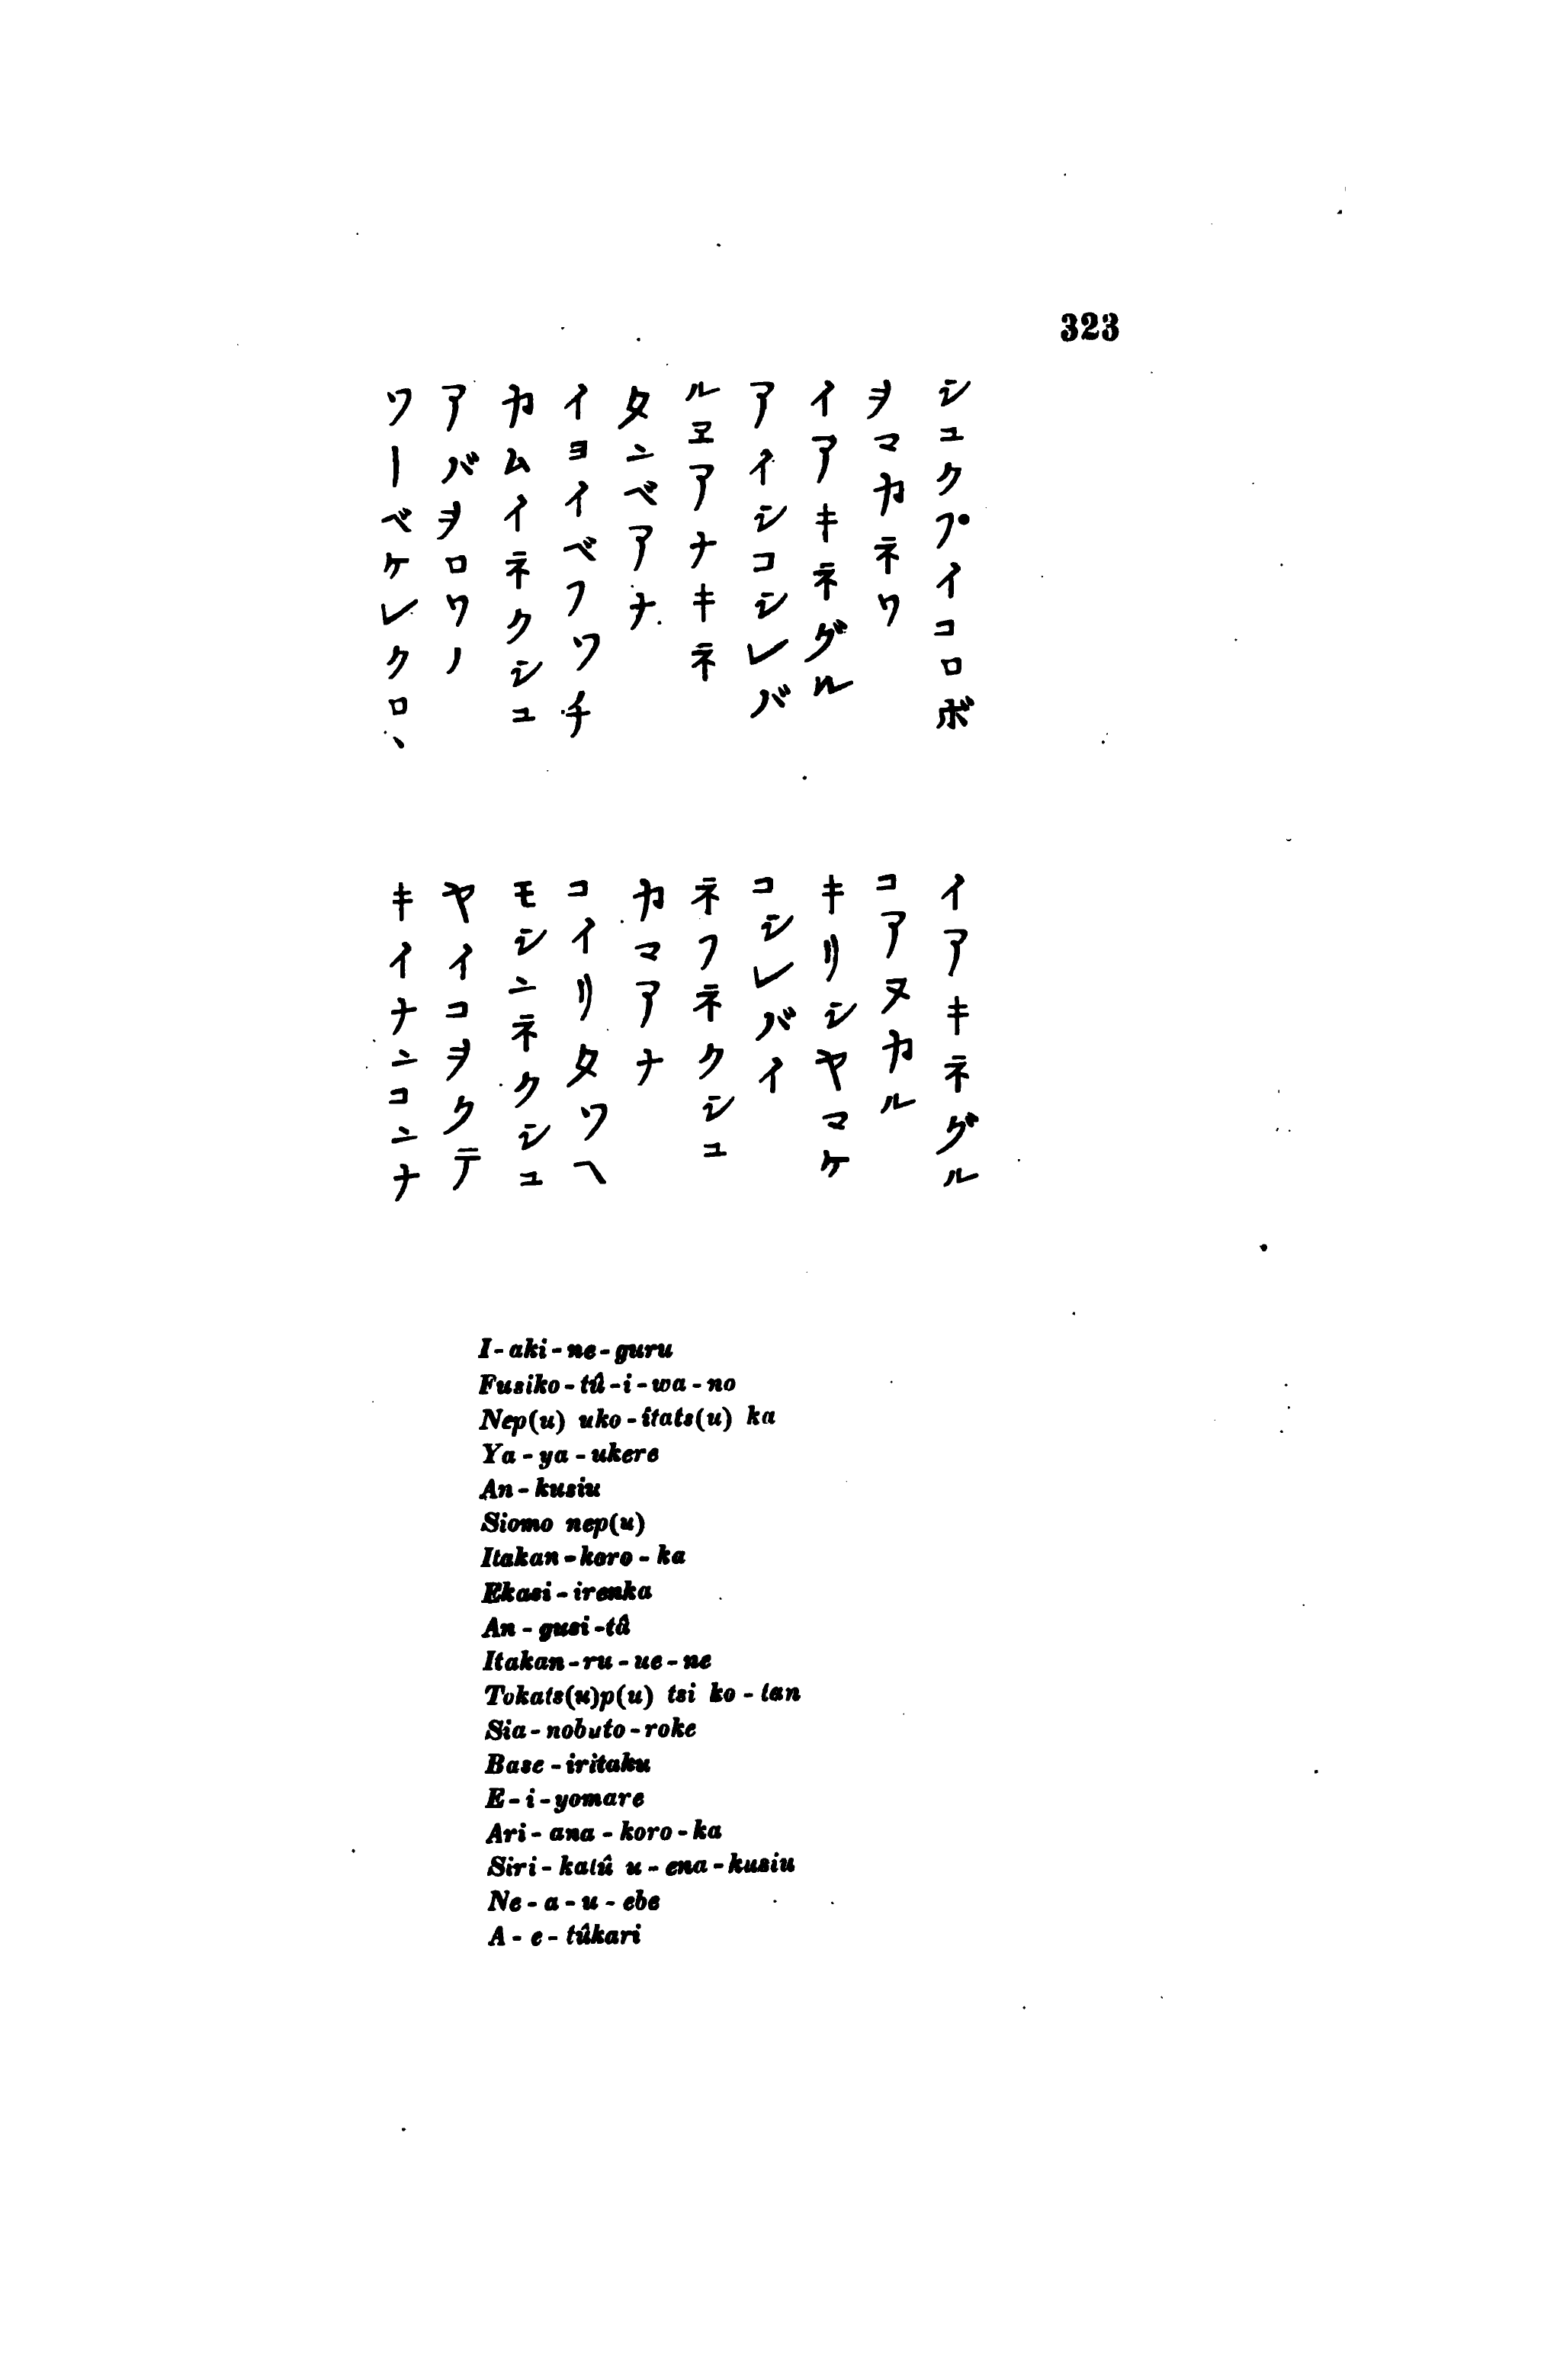 323
シユクプイコロボ
ヲマカネワ
イアキネグル
アイシコシレバ
ルヱアナキネ
タニベアナ
イヨイベフワチ
カムイネクシユ
アバヲロワノ
ワーベケレクロ、
イアキネグル
コアヌカル
キリシヤマケ
コシレバイ
ネフネクシユ
カマアナ
コイリタワヘ
モシニネクシユ
ヤイコヲクテ
キイナニコニナ
I - aki - ne - guru
Fusiko - tû - i - wa - no
Nep(u) uko - itats(u) ka
Ya - ya - ukere
An - kusiu
Siomo nep(u)
Itakan - koro - ka
Ekasi - irenka
An - gusi - tâ
Itakan - ru - ue - ne
Tokats(u)p(u) tsi ko - tan
Sia - nobuto - roke
Base - iritaku
E - i - yomare
Ari - ana - koro - ka
Siri - katû u - ena - kusiu
Ne - a - u - ebe
A - e - tûkari